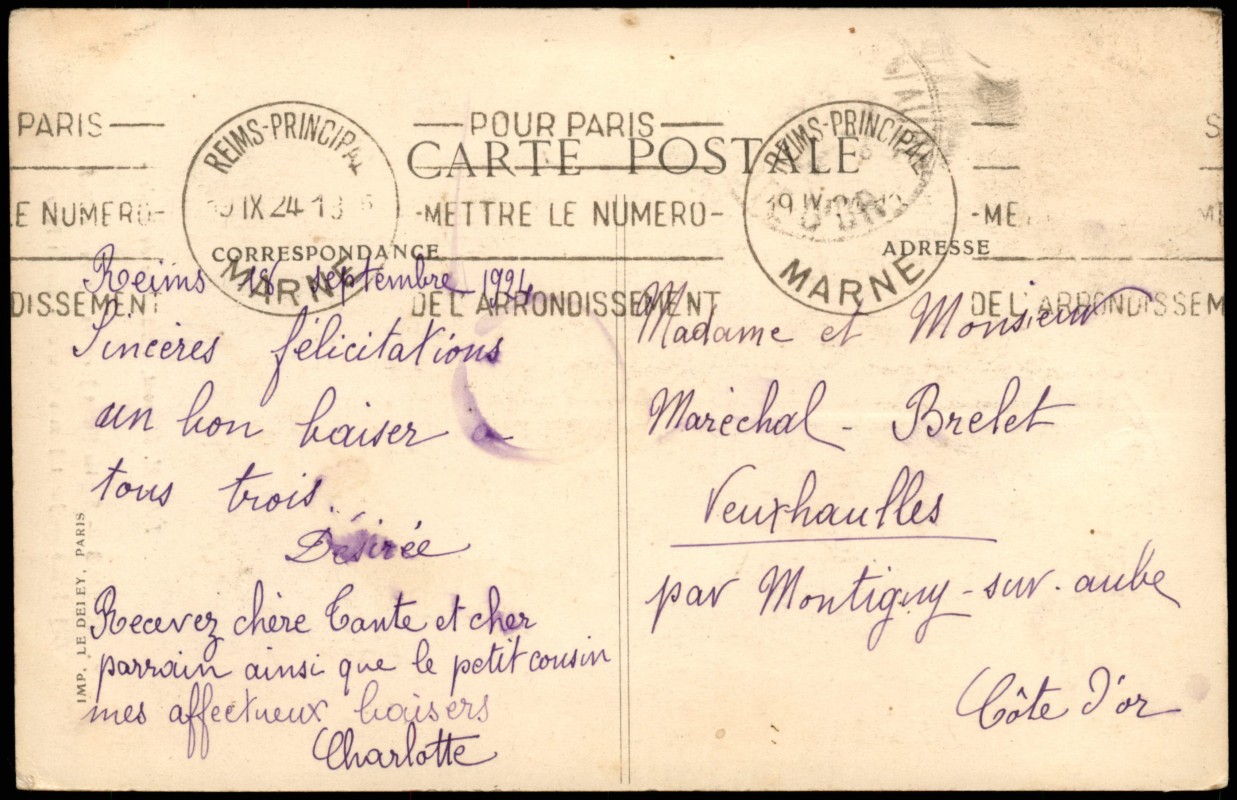 PARIS
POUR PARIS
CARTE POSTALE
REIMS-PRINCIPAL
REIMS-PRINCIPAL
LE NUMERO-
IX 24
-METTRE LE NUMERO-
19 IX
-ME
CORRESPONDANCE
ADRESSE
MARNE
MARNE
DISSEMENT
DE L'ARRONDISSEMENT
DE L'ARRONDISSEM
Reims 18 septembre 1924
Sincères félicitations
un bon baiser a
tous trois.
Désirée
Recevez chère Tante et cher
parrain ainsi que le petit cousin
mes affectueux baisers
Charlotte
Madame et Monsieur
Maréchal - Brelet
Veuxhaulles
par Montigny-sur-aube
Côte d'or
IMP. LE DELEY, PARIS